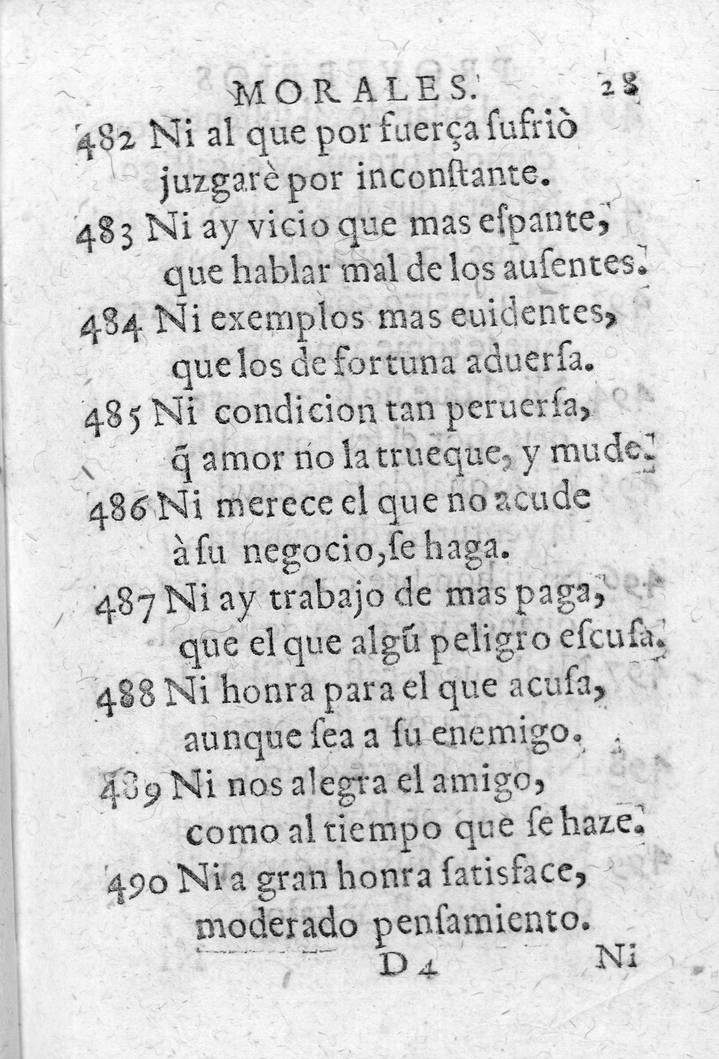 MORALES. 28
482 Ni al que por fuerça ſufriò
juzgarè por inconſtante.
483 Ni ay vicio que mas eſpante,
que hablar mal de los auſentes.
484 Ni exemplos mas euidentes,
que los de fortuna aduerſa.
485 Ni condicion tan peruerſa,
q̃ amor no la trueque, y mude.
486 Ni merece el que no acude
à ſu negocio, ſe haga.
487 Ni ay trabajo de mas paga,
que el que algũ peligro eſcuſa.
488 Ni honra para el que acuſa,
aunque ſea a ſu enemigo.
489 Ni nos alegra el amigo,
como al tiempo que ſe haze.
490 Ni a gran honra ſatisface,
moderado penſamiento.
D 4 Ni